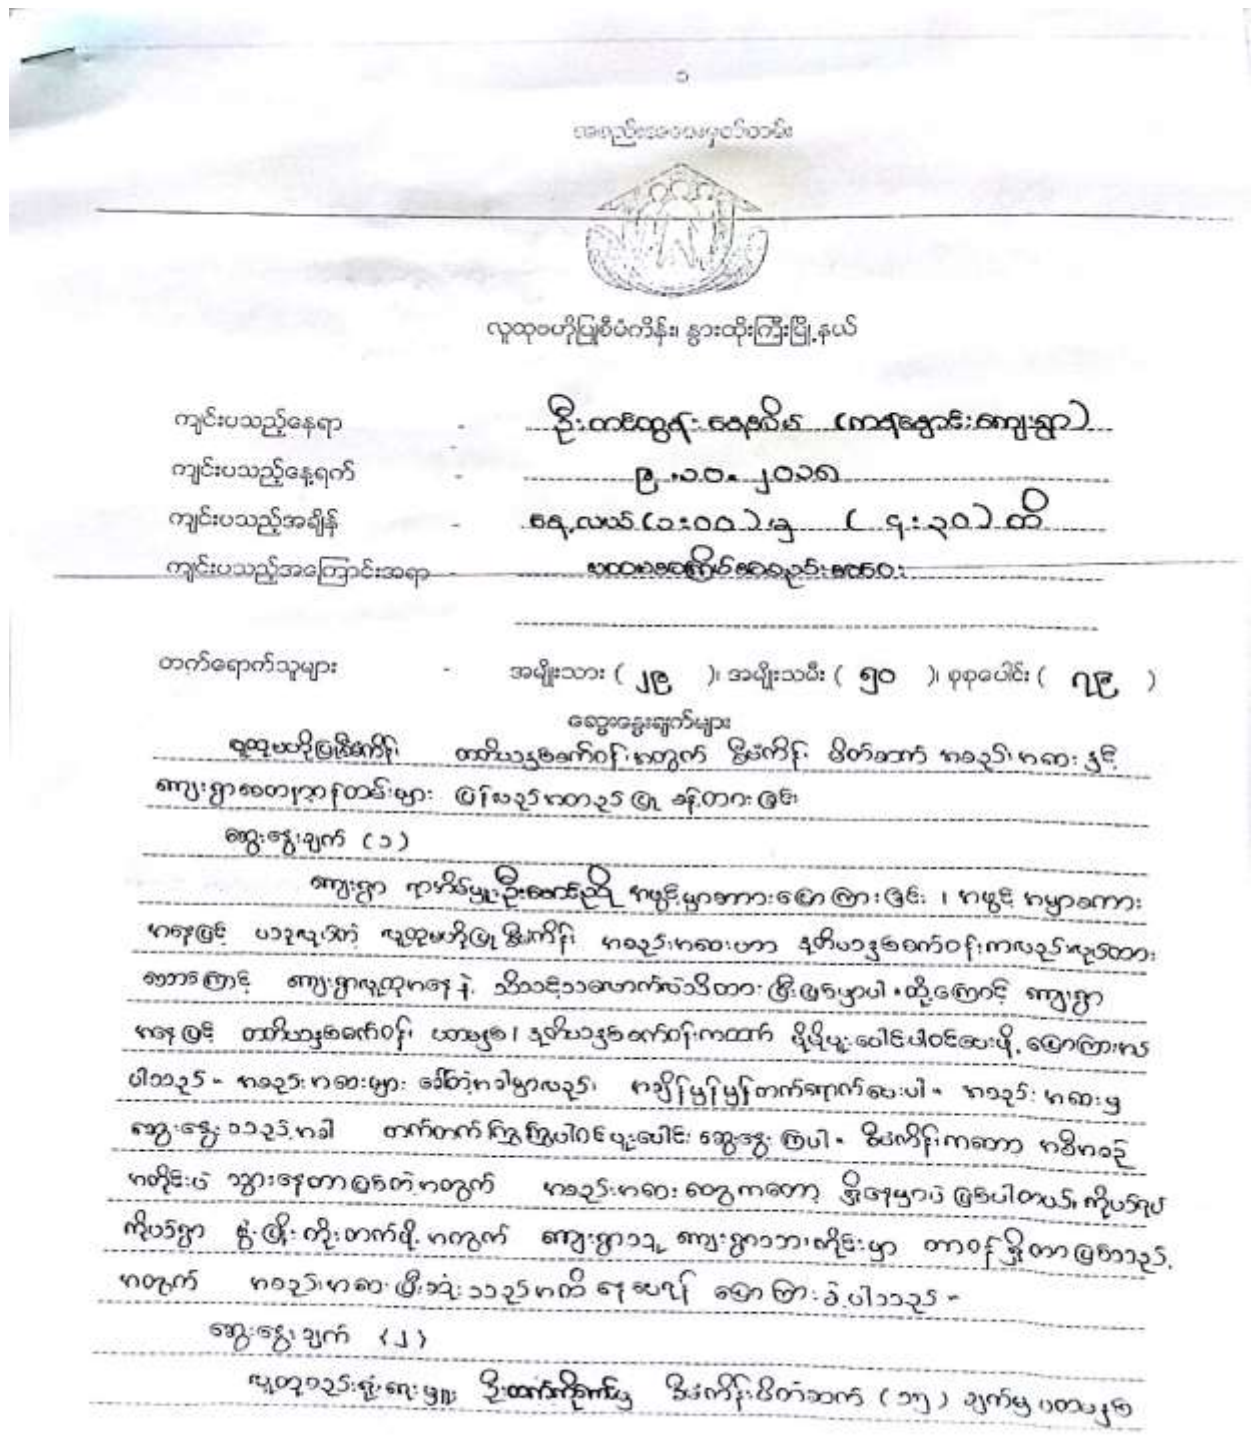 ၁
အစည်းအဝေးမှတ်တမ်း
လူထုဗဟိုပြုစီမံကိန်း၊ နွားထိုးကြီးမြို့နယ်
ကျင်းပသည့်နေရာ - ဦးတင်ထွန်း နေအိမ် (ကန်စောင်းကျေးရွာ)
ကျင်းပသည့်နေ့ရက် - ၉.၁၀.၂၀၁၈
ကျင်းပသည့်အချိန် - နေ့လယ် (၁:၀၀) မှ (၄:၃၀) ထိ
ကျင်းပသည့်အကြောင်းအရာ - ပထမအကြိမ်အစည်းအဝေး
တက်ရောက်သူများ - အမျိုးသား ( ၂၉ )၊ အမျိုးသမီး ( ၅၀ )၊ စုစုပေါင်း ( ၇၉ )
ဆွေးနွေးချက်များ
လူထုဗဟိုပြုစီမံကိန်း တတိယနှစ်စက်ဝန်းအတွက် စီမံကိန်း မိတ်ဆက် အစည်းအဝေး နှင့်
ကျေးရွာစေတနာ့ဝန်ထမ်းများ ပြန်လည်အတည်ပြု ခန့်ထားခြင်း
ဆွေးနွေးချက် (၁)
ကျေးရွာ ရာအိမ်မှူး ဦးအောင်ညို အဖွင့်မှာစကားပြောကြားခြင်း ၊ အဖွင့် အမှာစကား
အနေဖြင့် ယခုလုပ်တဲ့ လူထုဗဟိုပြုစီမံကိန်း အစည်းအဝေးဟာ ဒုတိယနှစ်စက်ဝန်းကလည်းလုပ်ထား
တာကြောင့် ကျေးရွာလူထုအနေနဲ့ သိသင့်သလောက်လဲသိထား ပြီးဖြစ်မှာပါ။ ထို့ကြောင့် ကျေးရွာ
အနေဖြင့် တတိယနှစ်စက်ဝန်း ယာမနှစ်၊ ဒုတိယနှစ်စက်ဝန်းကထက် ပိုမိုပူးပေါင်းပါဝင်ပေးဖို့ ပြောကြားလို
ပါသည်။ အစည်းအဝေးများ ခေါ်တဲ့အခါမှာလည်း အချိန်မှန်မှန်တက်ရောက်ပေးပါ။ အစည်းအဝေးမှ
ဆွေးနွေးသည့်အခါ တက်တက်ကြွကြွပါဝင်ပူးပေါင်း ဆွေးနွေးကြပါ။ စီမံကိန်းကတော့ အစီအစဉ်
အတိုင်းပဲ သွားနေတာဖြစ်တဲ့အတွက် အစည်းအဝေးတွေကတော့ ရှိနေမှာပဲ ဖြစ်ပါတယ်၊ ကိုယ့်ရပ်
ကိုယ့်ရွာ ဖွံ့ဖြိုးတိုးတက်ဖို့အတွက် ကျေးရွာသူ ကျေးရွာသားတိုင်းမှာ တာဝန်ရှိတာဖြစ်သည့်
အတွက် အစည်းအဝေးပြီးဆုံးသည်အထိ နေပေးရန် ပြောကြားခဲ့ပါသည်။
ဆွေးနွေးချက် (၂)
လူထုစည်းရုံးရေးမှူး စီမံကိန်းမိတ်ဆက် (၁၅) ချက်မှ ပထမနှစ်